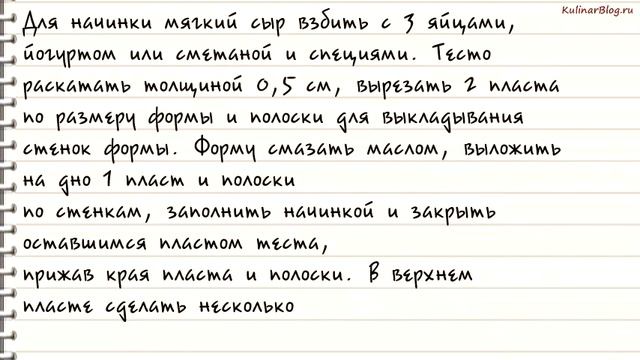 KulinarBlog.ru
Для начинки мягкий сыр взбить с 3 яйцами,
йогуртом или сметаной и специями. Тесто
раскатать толщиной 0,5 см, вырезать 2 пласта
по размеру формы и полоски для выкладывания
стенок формы. Форму смазать маслом, выложить
на дно 1 пласт и полоски
по стенкам, заполнить начинкой и закрыть
оставшимся пластом теста,
прижав края пласта и полоски. В верхнем
пласте сделать несколько